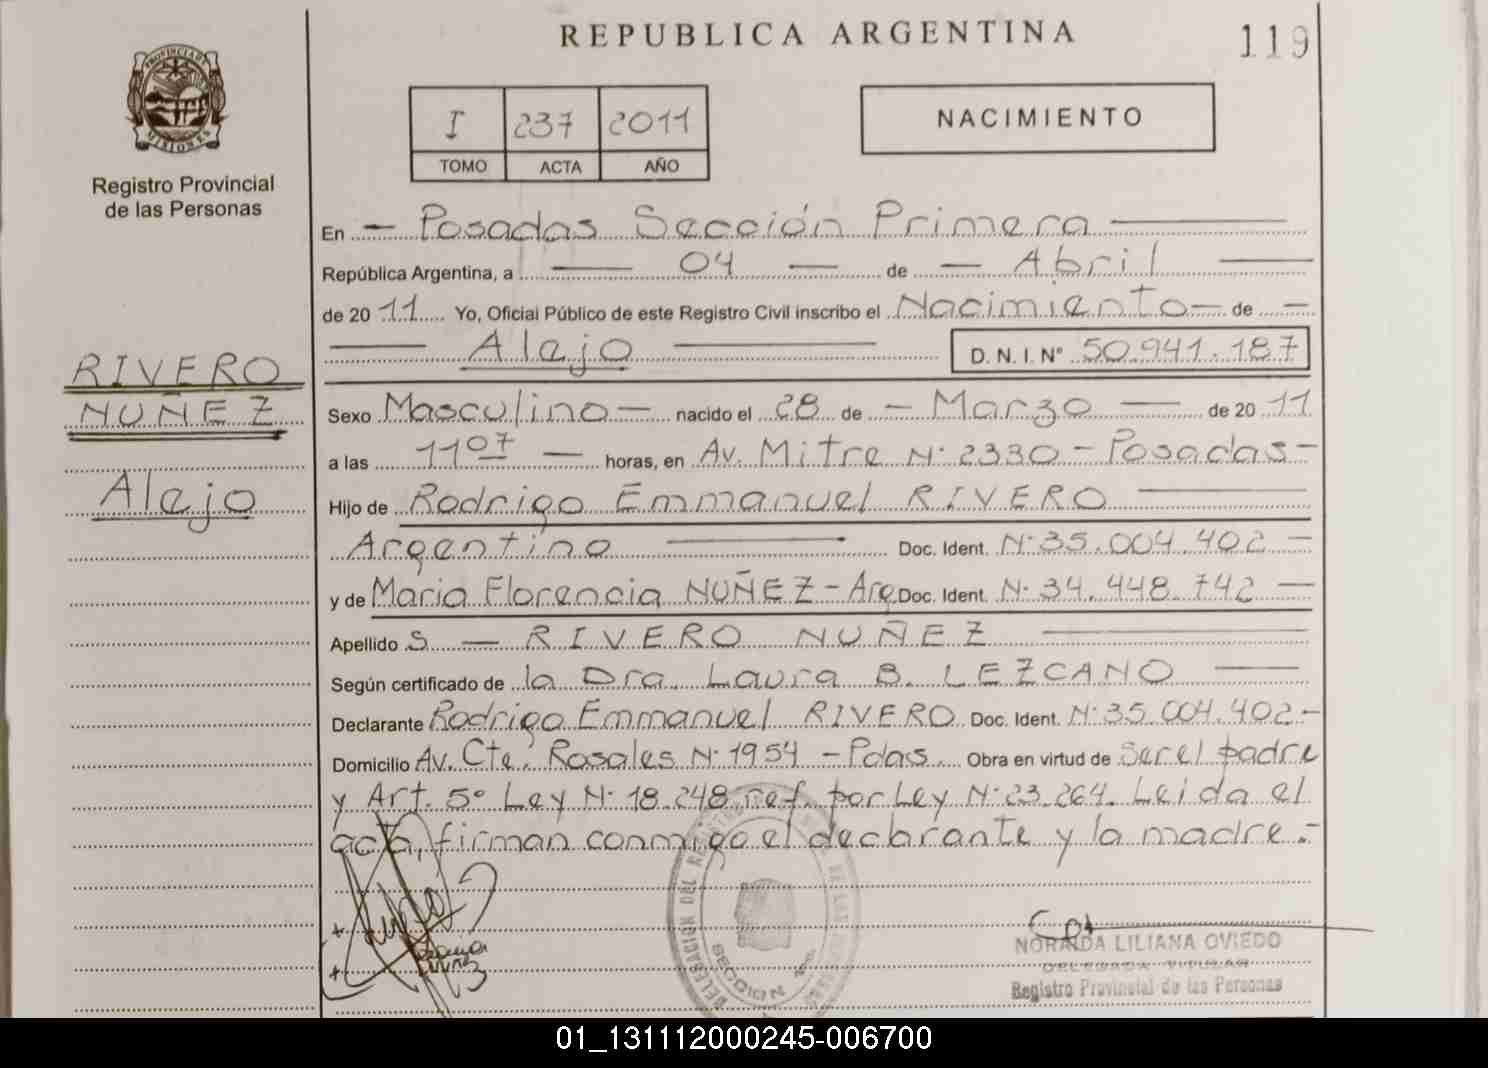 REPUBLICA ARGENTINA
119
PROVINCIA DE MISIONES
Registro Provincial
de las Personas
I 237 2011
TOMO ACTA AÑO
NACIMIENTO
En — Posadas Sección Primera —
República Argentina, a — 04 — de — Abril —
de 2011 Yo, Oficial Público de este Registro Civil inscribo el Nacimiento — de —
— Alejo — D. N. I. Nº 50.941.187
RIVERO
NUÑEZ
Alejo
Sexo Masculino — nacido el 28 de — Marzo — de 2011
a las 11 07 — horas, en Av. Mitre Nº 2330 - Posadas -
Hijo de Rodrigo Emmanuel RIVERO —
Argentino — Doc. Ident. Nº 35.004.402 —
y de Maria Florencia NUÑEZ - Arg Doc. Ident. Nº 34.448.742 —
Apellido S — RIVERO NUÑEZ —
Según certificado de la Dra. Laura B. LEZCANO —
Declarante Rodrigo Emmanuel RIVERO Doc. Ident. Nº 35.004.402.-
Domicilio Av. Cte. Rosales Nº 1954 - Pdas. Obra en virtud de Ser el padre
y Art. 5º Ley Nº 18.248 ref. por Ley Nº 23.264. Leida el
acta, firman conmigo el declarante y la madre.-
DELEGACION DEL
SECCION
NORAIDA LILIANA OVIEDO
DELEGADA TITULAR
Registro Provincial de las Personas
01_131112000245-006700